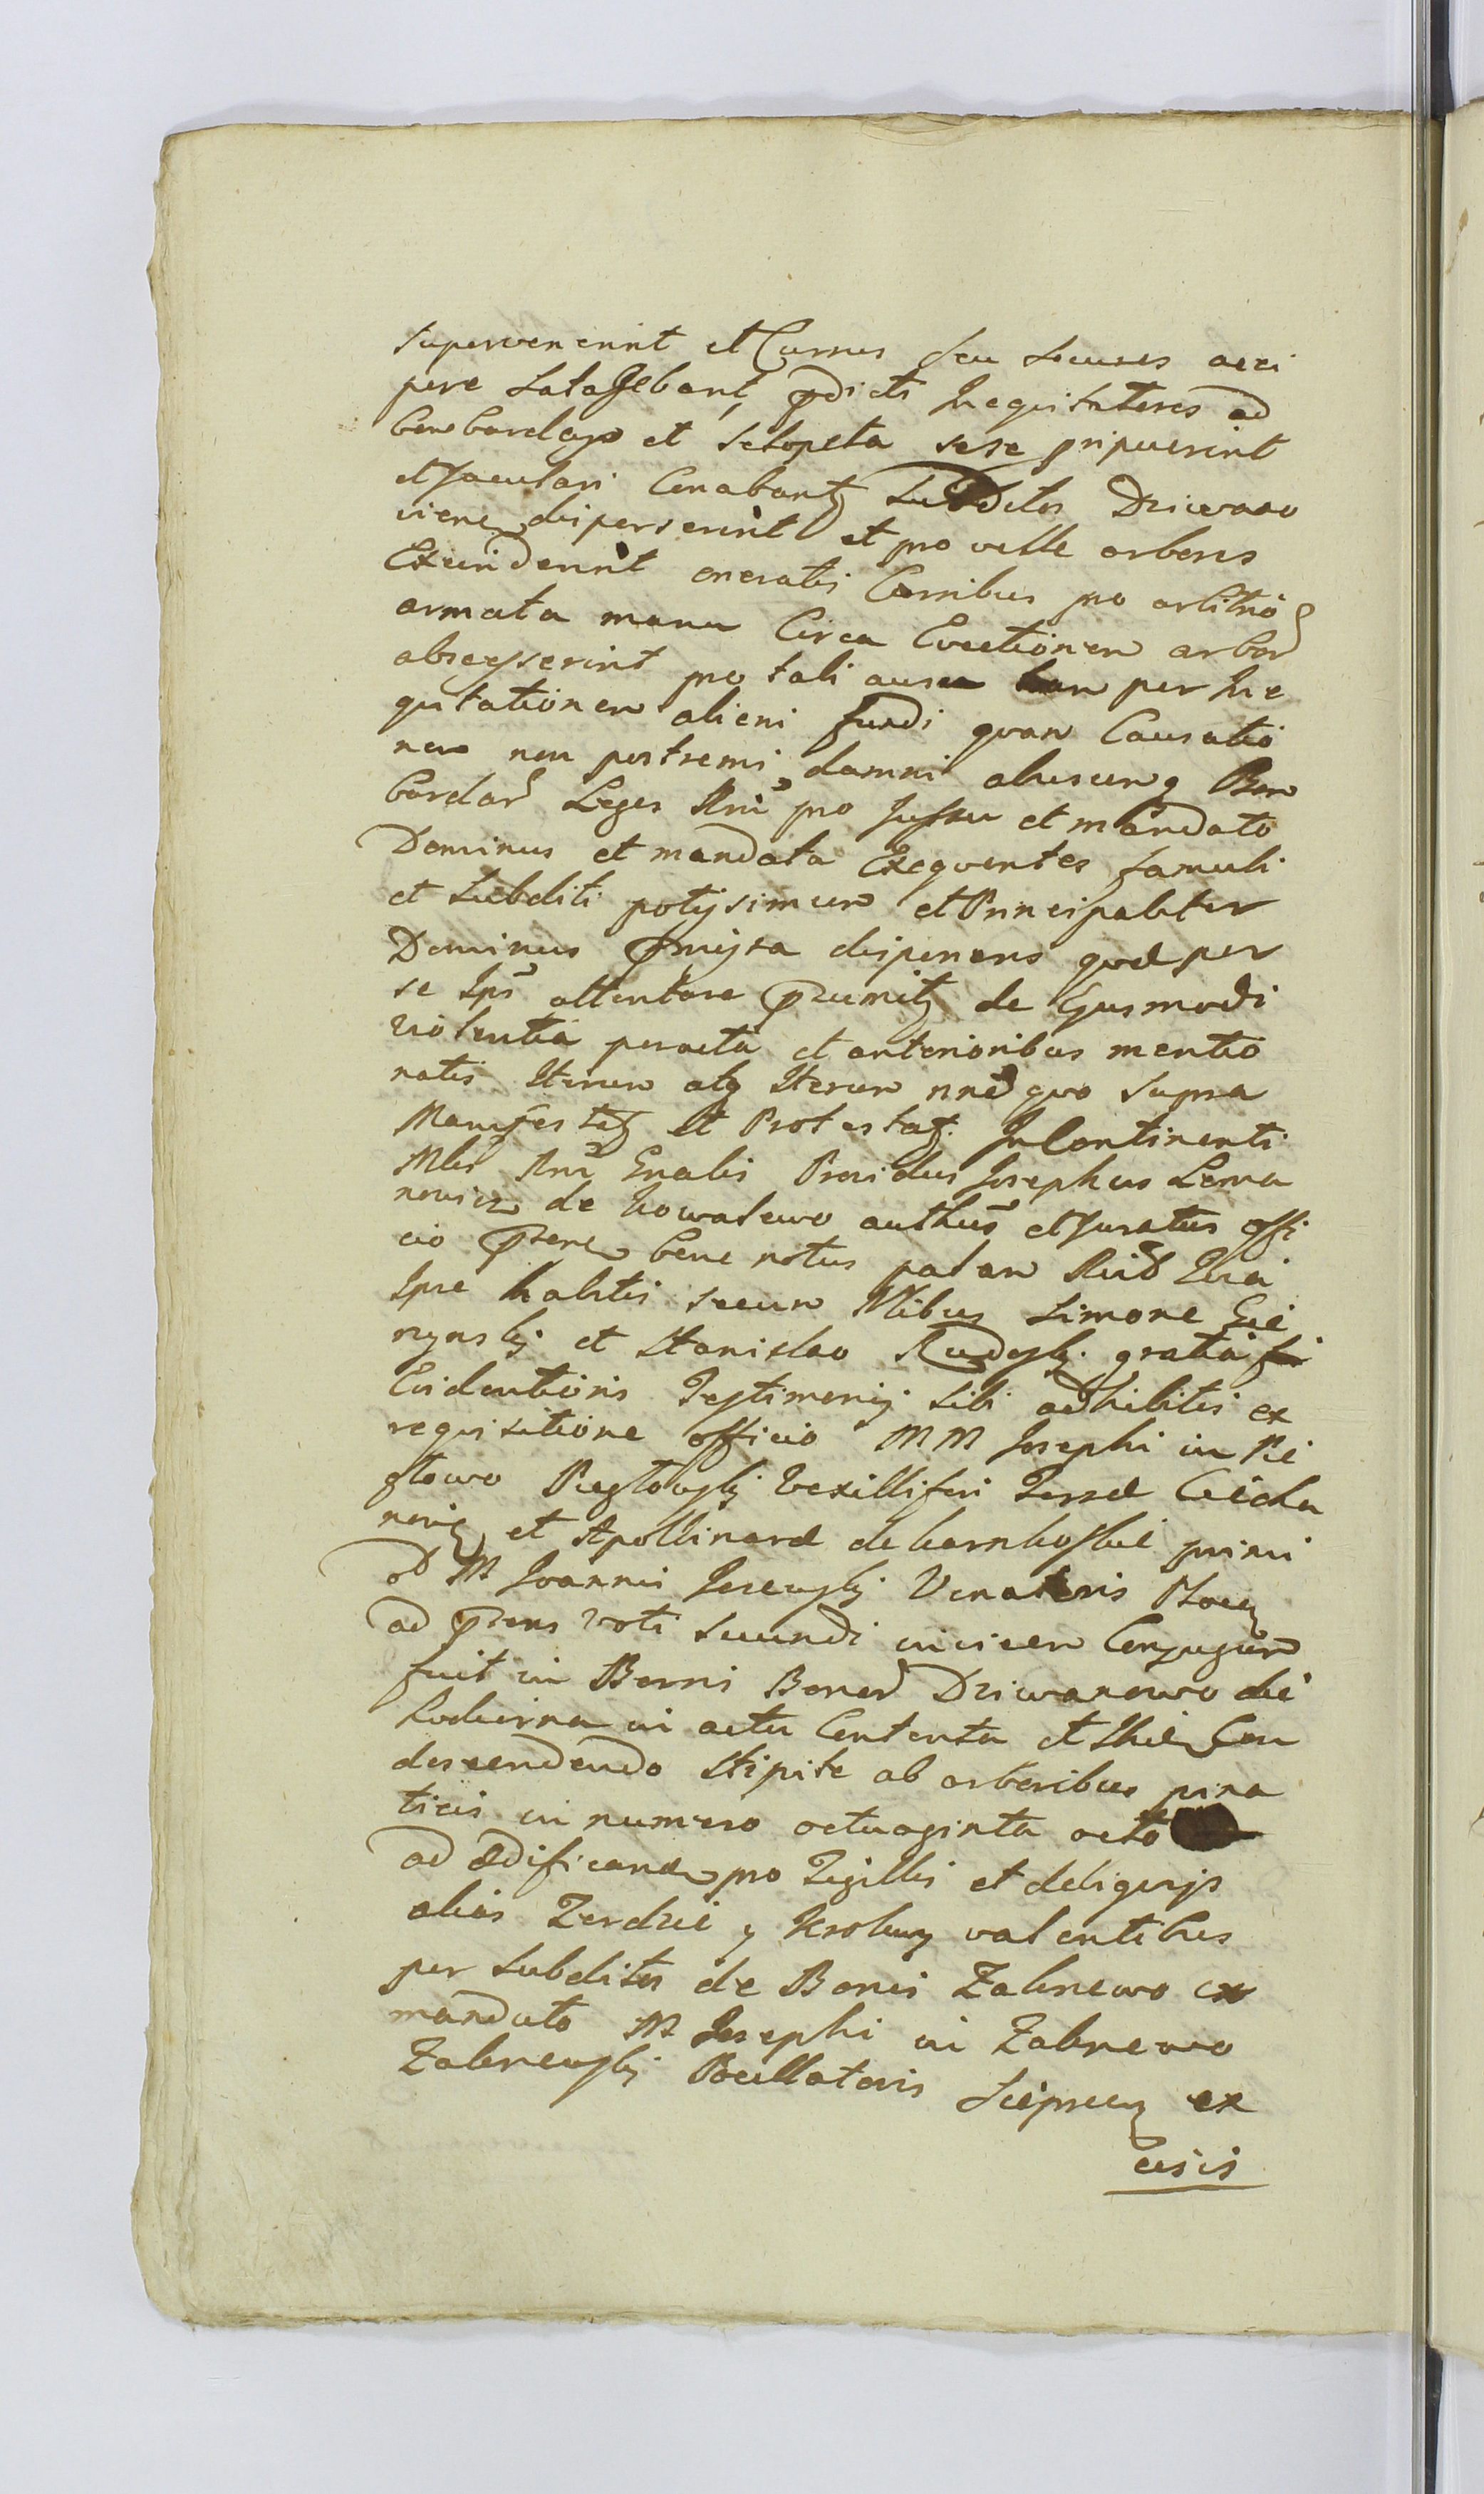 supervenerint et Currus seu secures acci
pere satagebant, pdicti Inequitatores ad
bombardas et sclopeta sese pripuerint
et Jaculari Conabantz Subditos Dziwano
viens disperserint et pro velle arbores
Excinderint oneratis Curribus pro arbitrio
armata manu Circa Evectionem arbor
abscesserint pro tali ausu tam per Ine
quitationem alieni fundi quam Causatio
nem non postremi damni abusumq Bom
bardar Leges Rni pro Jussu et mandato
Dominus et mandata Exequentes famuli
et Subditi potissimum et Principaliter
Dominus pmissa disponens quæ per
se Ips attentare psumitz de Ejusmodi
violentia peracta et anterioribus mentio
natis Iterum atq Iterum nne quo supra
Manifestatz et Protestatz. In Continenti
Mlis Rni Gnalis Providus Josephus Lema
nowicz de Kowalewo authus et Juratus offi
cio psenti bene notus palam
Ipse habitis secum Nlibus Simone Gie
rynski et Stanislao Rudzski gratia
Evidentioris Testimonij sibi adhibitis ex
requisitione officio MM Josephi in Re
Vexilliferi Terræ Ciecha
noviz et Apollinaræ de primi
M Joannis Jezewski Venatoris Plocz
ad psens voti secundi invicem Conjugum
fuit in Bonis Bonor Dziwanowo die
hodierna in actu Contenta et Ibidem Con
descendendo stipite ab arboribus pina
ticis in numero octuaginta octo
ad ædificand pro Tigillis et deliguijs
alias Zerdzie y Krokwy valentibus
per subditos de Bonis Zabnewo ex
mandato M Josephi in Zabnewo
Zabnewski Pocillatoris Sieprecz ex
cisis